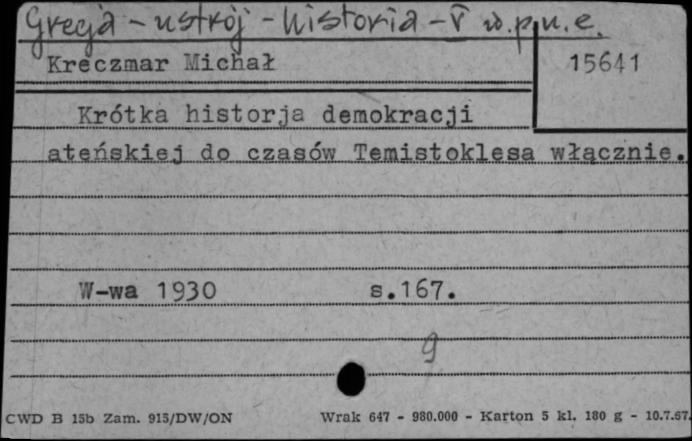 Grecja - ustrój - historia - V w.p.n.e.
Kreczmar Michał 15641
Krótka historja demokracji
ateńskiej do czasów Temistoklesa włącznie.
W-wa 1930 s.167.
9
CWD B 15b Zam. 915/DW/ON Wrak 647 - 980.000 - Karton 5 kl. 180 g - 10.7.67.